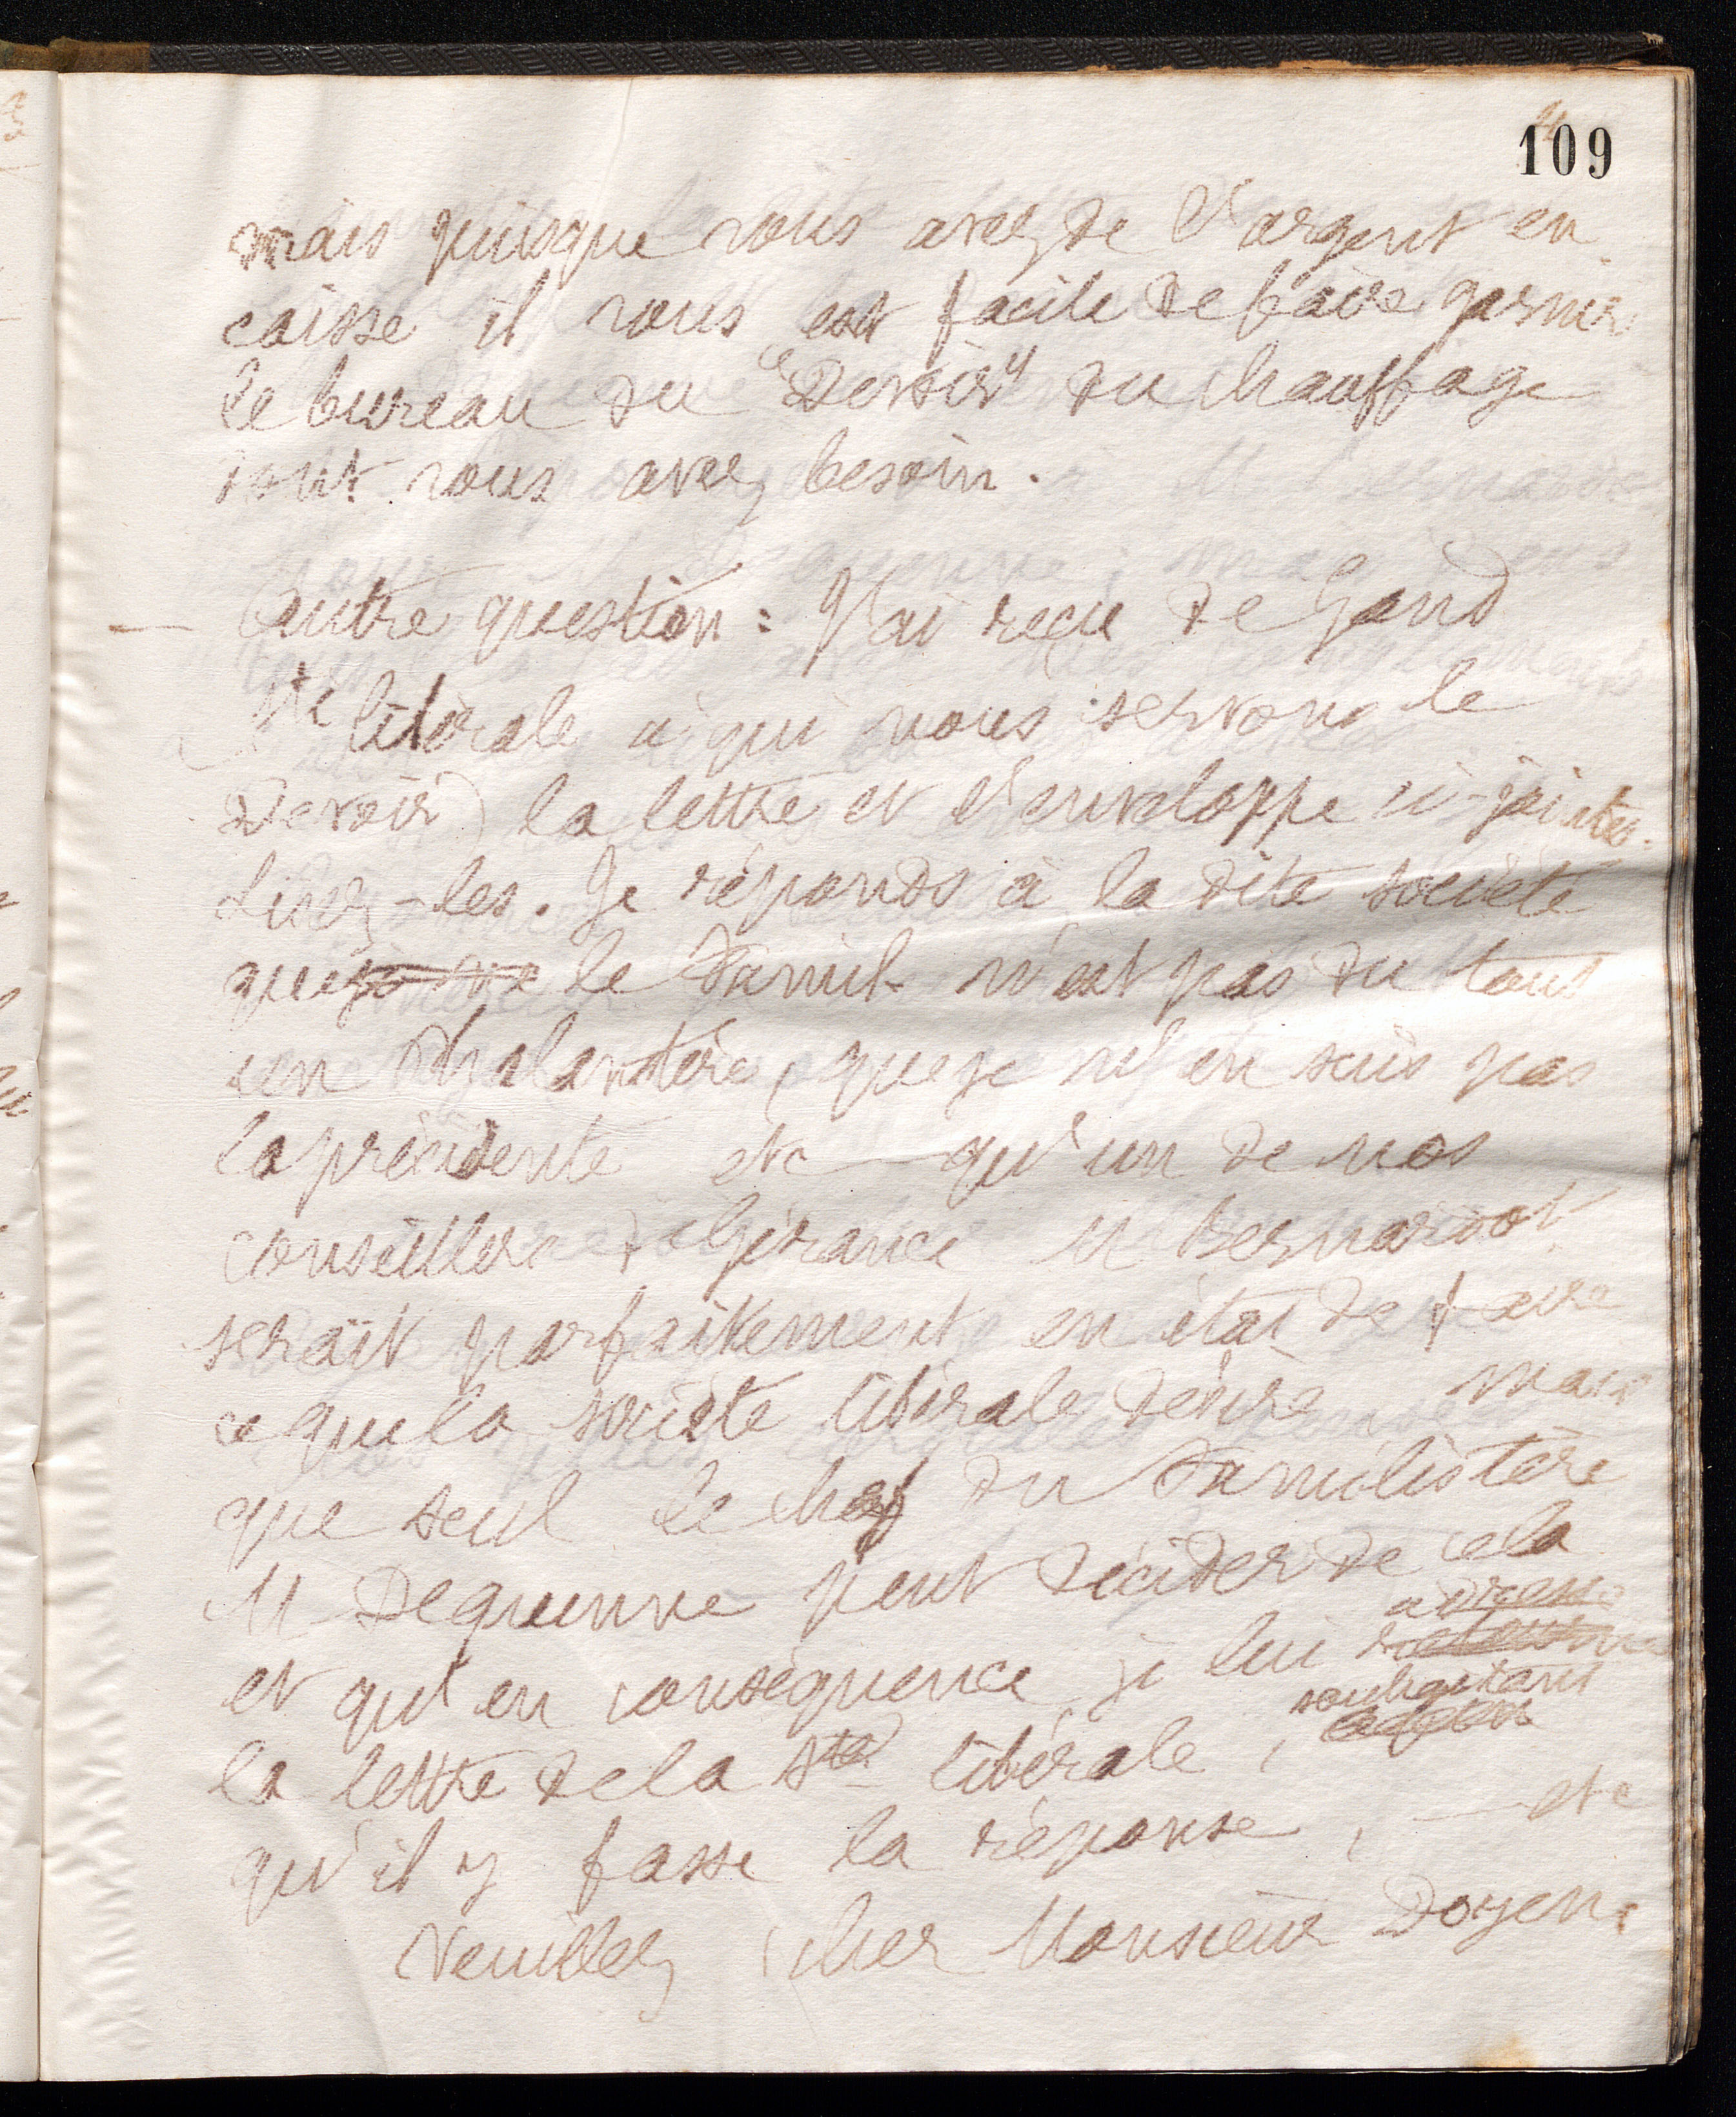 109
mais puisque vous avez de l'argent en
caisse il vous est facile de faire garnir
le bureau du "Devoir" du chauffage
dont vous avez besoin.
— Autre question : J'ai reçu de Gand
(Sté libérale à qui nous servons le
Devoir) la lettre et l'enveloppe ci-jointes.
Lisez-les. Je réponds à la dite société
que le Famil- n'est pas du tout
un Phalanstère, que je n'en suis pas
la présidente etc — qu'un de nos
conseillers de Gérance M Bernardot
serait parfaitement en état de faire
ce que la société libérale désire mais
que seul le chef du Familistère
M Dequenne peut décider de cela
et qu'en conséquence je lui adresse
la lettre de la Sté libérale, souhaitant
qu'il y fasse la réponse, — etc
Veuillez, cher Monsieur Doyen,